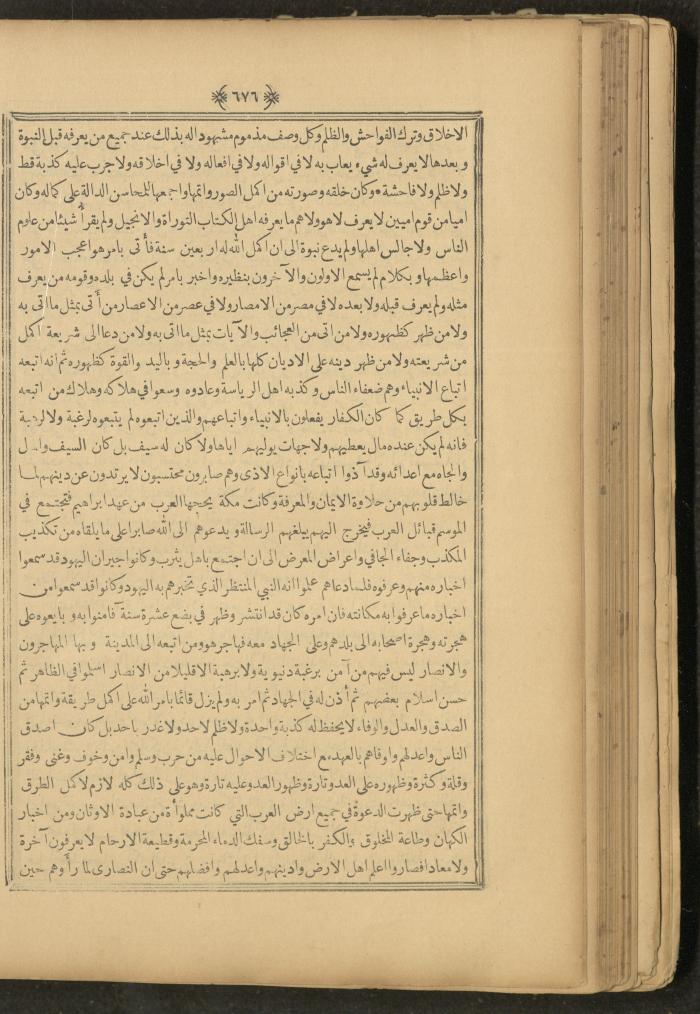 ﴿ ٦٧٦ ﴾
الاخلاق وترك الفواحش والظلم وكل وصف مذموم مشهودا له بذلك عند جميع من يعرفه قبل النبوة
وبعدها لا يعرف له شيء يعاب به لا في اقواله ولا في افعاله ولا في اخلاقه ولا جرب عليه كذبة قط
ولا ظلم ولا فاحشة وكان خلقه وصورته من اكمل الصور واتمها واجمعها للمحاسن الدالة على كماله وكان
اميا من قوم اميين لا يعرف لا هو ولا هم ما يعرفه اهل الكتاب التوراة والانجيل ولم يقرأ شيئا من علوم
الناس ولا جالس اهلها ولم يدع نبوة الى ان اكمل الله له اربعين سنة فأتى بامر هو اعجب الامور
واعظمها وبكلام لم يسمع الاولون والآخرون بنظيره واخبر بامر لم يكن في بلده وقومه من يعرف
مثله ولم يعرف قبله ولا بعده لا في مصر من الامصار ولا في عصر من الاعصار من أتى بمثل ما اتى به
ولا من ظهر كظهوره ولا من اتى من العجائب والآيات بمثل ما اتى به ولا من دعا الى شريعة اكمل
من شريعته ولا من ظهر دينه على الاديان كلها بالعلم والحجة وباليد والقوة كظهوره ثم انه اتبعه
اتباع الانبياء وهم ضعفاء الناس وكذبه اهل الرياسة وعادوه وسعوا في هلاكه وهلاك من اتبعه
بكل طريق كما كان الكفار يفعلون بالانبياء واتباعهم والذين اتبعوه لم يتبعوه لرغبة ولا لرهبة
فانه لم يكن عنده مال يعطيهم ولا جهات يوليهم اياها ولا كان له سيف بل كان السيف والمال
والجاه مع اعدائه وقد آذوا اتباعه بانواع الاذى وهم صابرون محتسبون لا يرتدون عن دينهم لما
خالط قلوبهم من حلاوة الايمان والمعرفة وكانت مكة يحجها العرب من عهد ابراهيم فتجتمع في
الموسم قبائل العرب فيخرج اليهم يبلغهم الرسالة ويدعوهم الى الله صابرا على ما يلقاه من تكذيب
المكذب وجفاء الجافي واعراض المعرض الى ان اجتمع باهل يثرب وكانوا جيران اليهود قد سمعوا
اخباره منهم وعرفوه فلما دعاهم علموا انه النبي المنتظر الذي تخبرهم به اليهود وكانوا قد سمعوا من
اخباره ما عرفوا به مكانته فان امره كان قد انتشر وظهر في بضع عشرة سنة فآمنوا به وبايعوه على
هجرته وهجرة اصحابه الى بلدهم وعلى الجهاد معه فهاجر هو ومن اتبعه الى المدينة وبها المهاجرون
والانصار ليس فيهم من آمن برغبة دنيوية ولا برهبة الا قليلا من الانصار اسلموا في الظاهر ثم
حسن اسلام بعضهم ثم أذن له في الجهاد ثم امر به ولم يزل قائما بامر الله على اكمل طريقة واتمها من
الصدق والعدل والوفاء لا يحفظ له كذبة واحدة ولا ظلم لاحد ولا غدر باحد بل كان اصدق
الناس واعدلهم واوفاهم بالعهد مع اختلاف الاحوال عليه من حرب وسلم وامن وخوف وغنى وفقر
وقلة وكثرة وظهوره على العدو تارة وظهور العدو عليه تارة وهو على ذلك كله لازم لاكمل الطرق
واتمها حتى ظهرت الدعوة في جميع ارض العرب التي كانت مملوأة من عبادة الاوثان ومن اخبار
الكهان وطاعة المخلوق والكفر بالخالق وسفك الدماء المحرمة وقطيعة الارحام لا يعرفون آخرة
ولا معادا فصاروا اعلم اهل الارض وادينهم واعدلهم وافضلهم حتى ان النصارى لما رأوهم حين